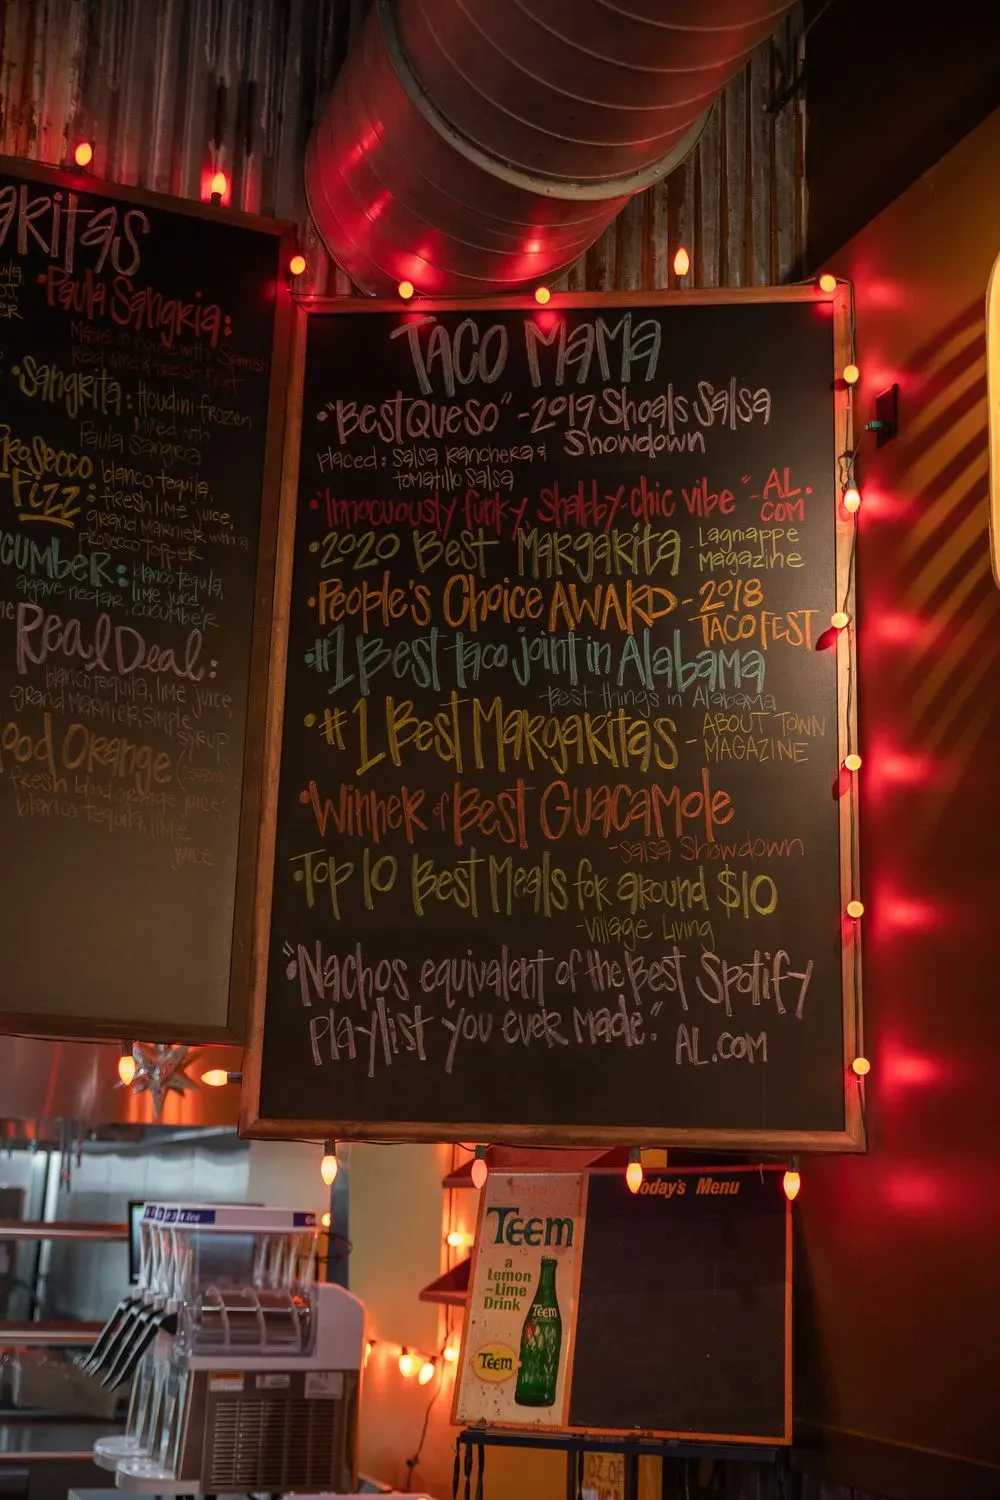 Paula Sangria:
Made in house with Spanish
Red wine & fresh fruit
•Sangrita: Houdini frozen
mixed with
Paula Sangria
Prosecco
Fizz: blanco tequila,
fresh lime juice,
grand marnier with a
prosecco topper
blanco tequila,
lime juice
agave nectar, cucumber
Real Deal:
blanco tequila, lime juice,
grand marnier, simple
syrup
Orange
fresh blood orange juice,
blanco tequila, lime
juice
TACO MAMA
•"Best Queso" - 2019 Shoals Salsa
Showdown
placed: salsa ranchera &
tomatillo salsa
•"Innocuously funky, shabby-chic vibe" - AL.
COM
•2020 Best Margarita - Lagniappe
Magazine
•People's Choice AWARD - 2018
TACO FEST
•#1 Best taco joint in Alabama
-Best things in Alabama
•#1 Best Margaritas - ABOUT TOWN
MAGAZINE
•Winner of Best Guacamole
-Salsa Showdown
•Top 10 Best Meals for around $10
-Village Living
•"Nachos equivalent of the Best Spotify
playlist you ever made." AL.COM
Today's Menu
Teem
a
Lemon
-Lime
Drink
Teem
Teem